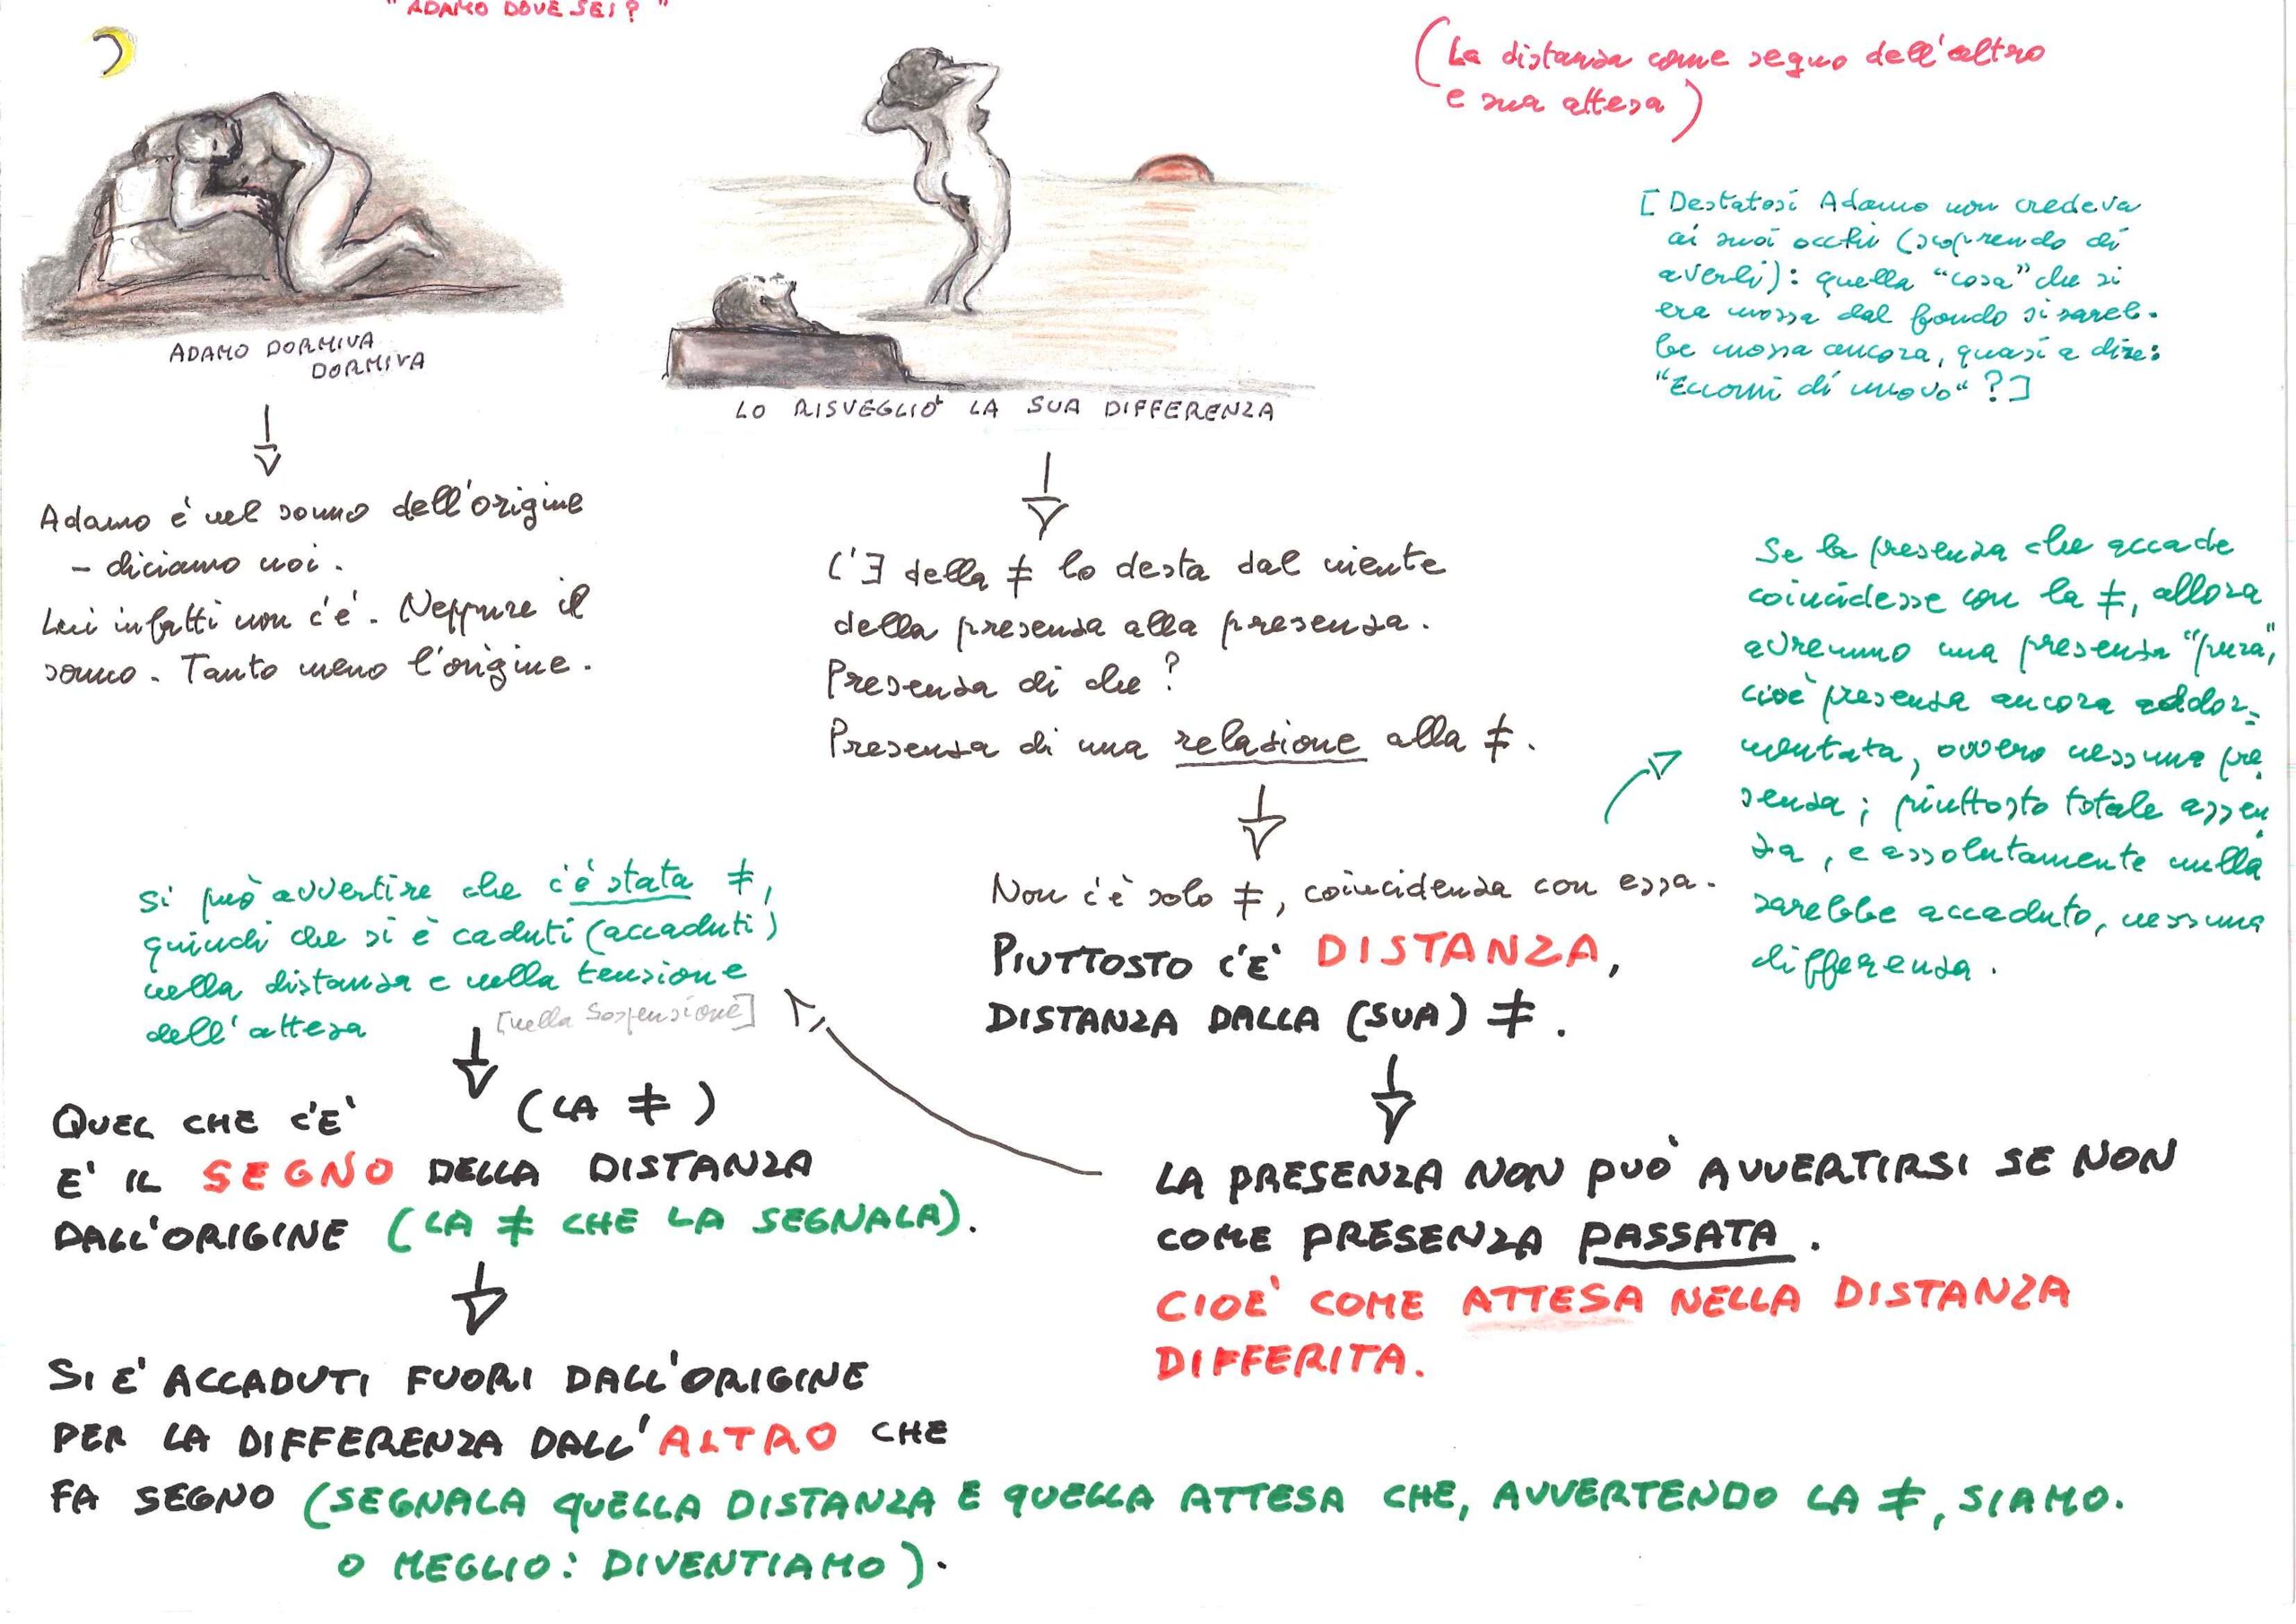 "ADAMO DOVE SEI?"
(La distanza come segno dell'altro
e sua attesa)
ADAMO DORMIVA
DORMIVA
LO RISVEGLIÒ LA SUA DIFFERENZA
[Destatosi Adamo non credeva
ai suoi occhi (scoprendo di
averli): quella "cosa" che si
era mossa dal fondo si sareb-
be mossa ancora, quasi a dire:
"Eccomi di nuovo"?]
Adamo è nel sonno dell'origine
- diciamo noi.
Lui infatti non c'è. Neppure il
sonno. Tanto meno l'origine.
C'∃ della ≠ lo desta dal niente
della presenza alla presenza.
Presenza di che?
Presenza di una relazione alla ≠.
Non c'è solo ≠, coincidenza con essa.
PIUTTOSTO C'E' DISTANZA,
DISTANZA DALLA (SUA) ≠.
Se la presenza che accade
coincidesse con la ≠, allora
avremmo una presenza "pura",
cioè presenza ancora addor-
mentata, ovvero nessuna pre-
senza; piuttosto totale assen-
za, e assolutamente nulla
sarebbe accaduto, nessuna
differenza.
LA PRESENZA NON PUÒ AVVERTIRSI SE NON
COME PRESENZA PASSATA.
CIOE' COME ATTESA NELLA DISTANZA
DIFFERITA.
Si può avvertire che c'è stata ≠,
quindi che si è caduti (accaduti)
nella distanza e nella tensione
dell'attesa [nella sospensione]
QUEL CHE C'E' (LA ≠)
E' IL SEGNO DELLA DISTANZA
DALL'ORIGINE (LA ≠ CHE LA SEGNALA).
SI E' ACCADUTI FUORI DALL'ORIGINE
PER LA DIFFERENZA DALL'ALTRO CHE
FA SEGNO (SEGNALA QUELLA DISTANZA E QUELLA ATTESA CHE, AVVERTENDO LA ≠, SIAMO.
O MEGLIO: DIVENTIAMO).